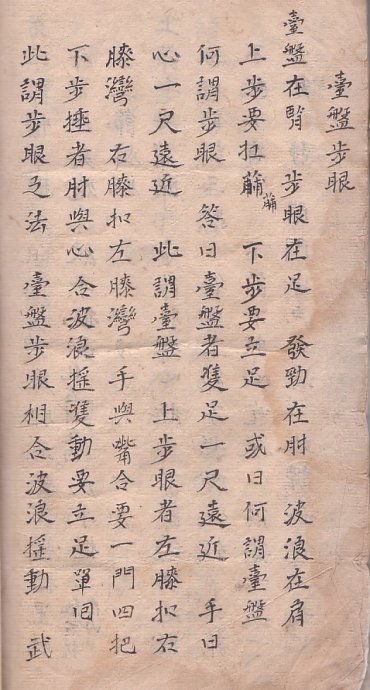 臺盤步眼
臺盤在腎 步眼在足 發勁在肘 波浪在肩
上步要扛 下步要立足 或曰何謂臺盤
何謂步眼 答曰臺盤者雙足一尺遠近 手曰
心一尺遠近 此謂臺盤 上步眼者左膝扣右
膝灣 右膝扣左膝灣 手與嘴合要一門四把
下步捶者肘與心合波浪搖雙動要立足單回
此謂步眼之法 臺盤步眼相合波浪搖動 武